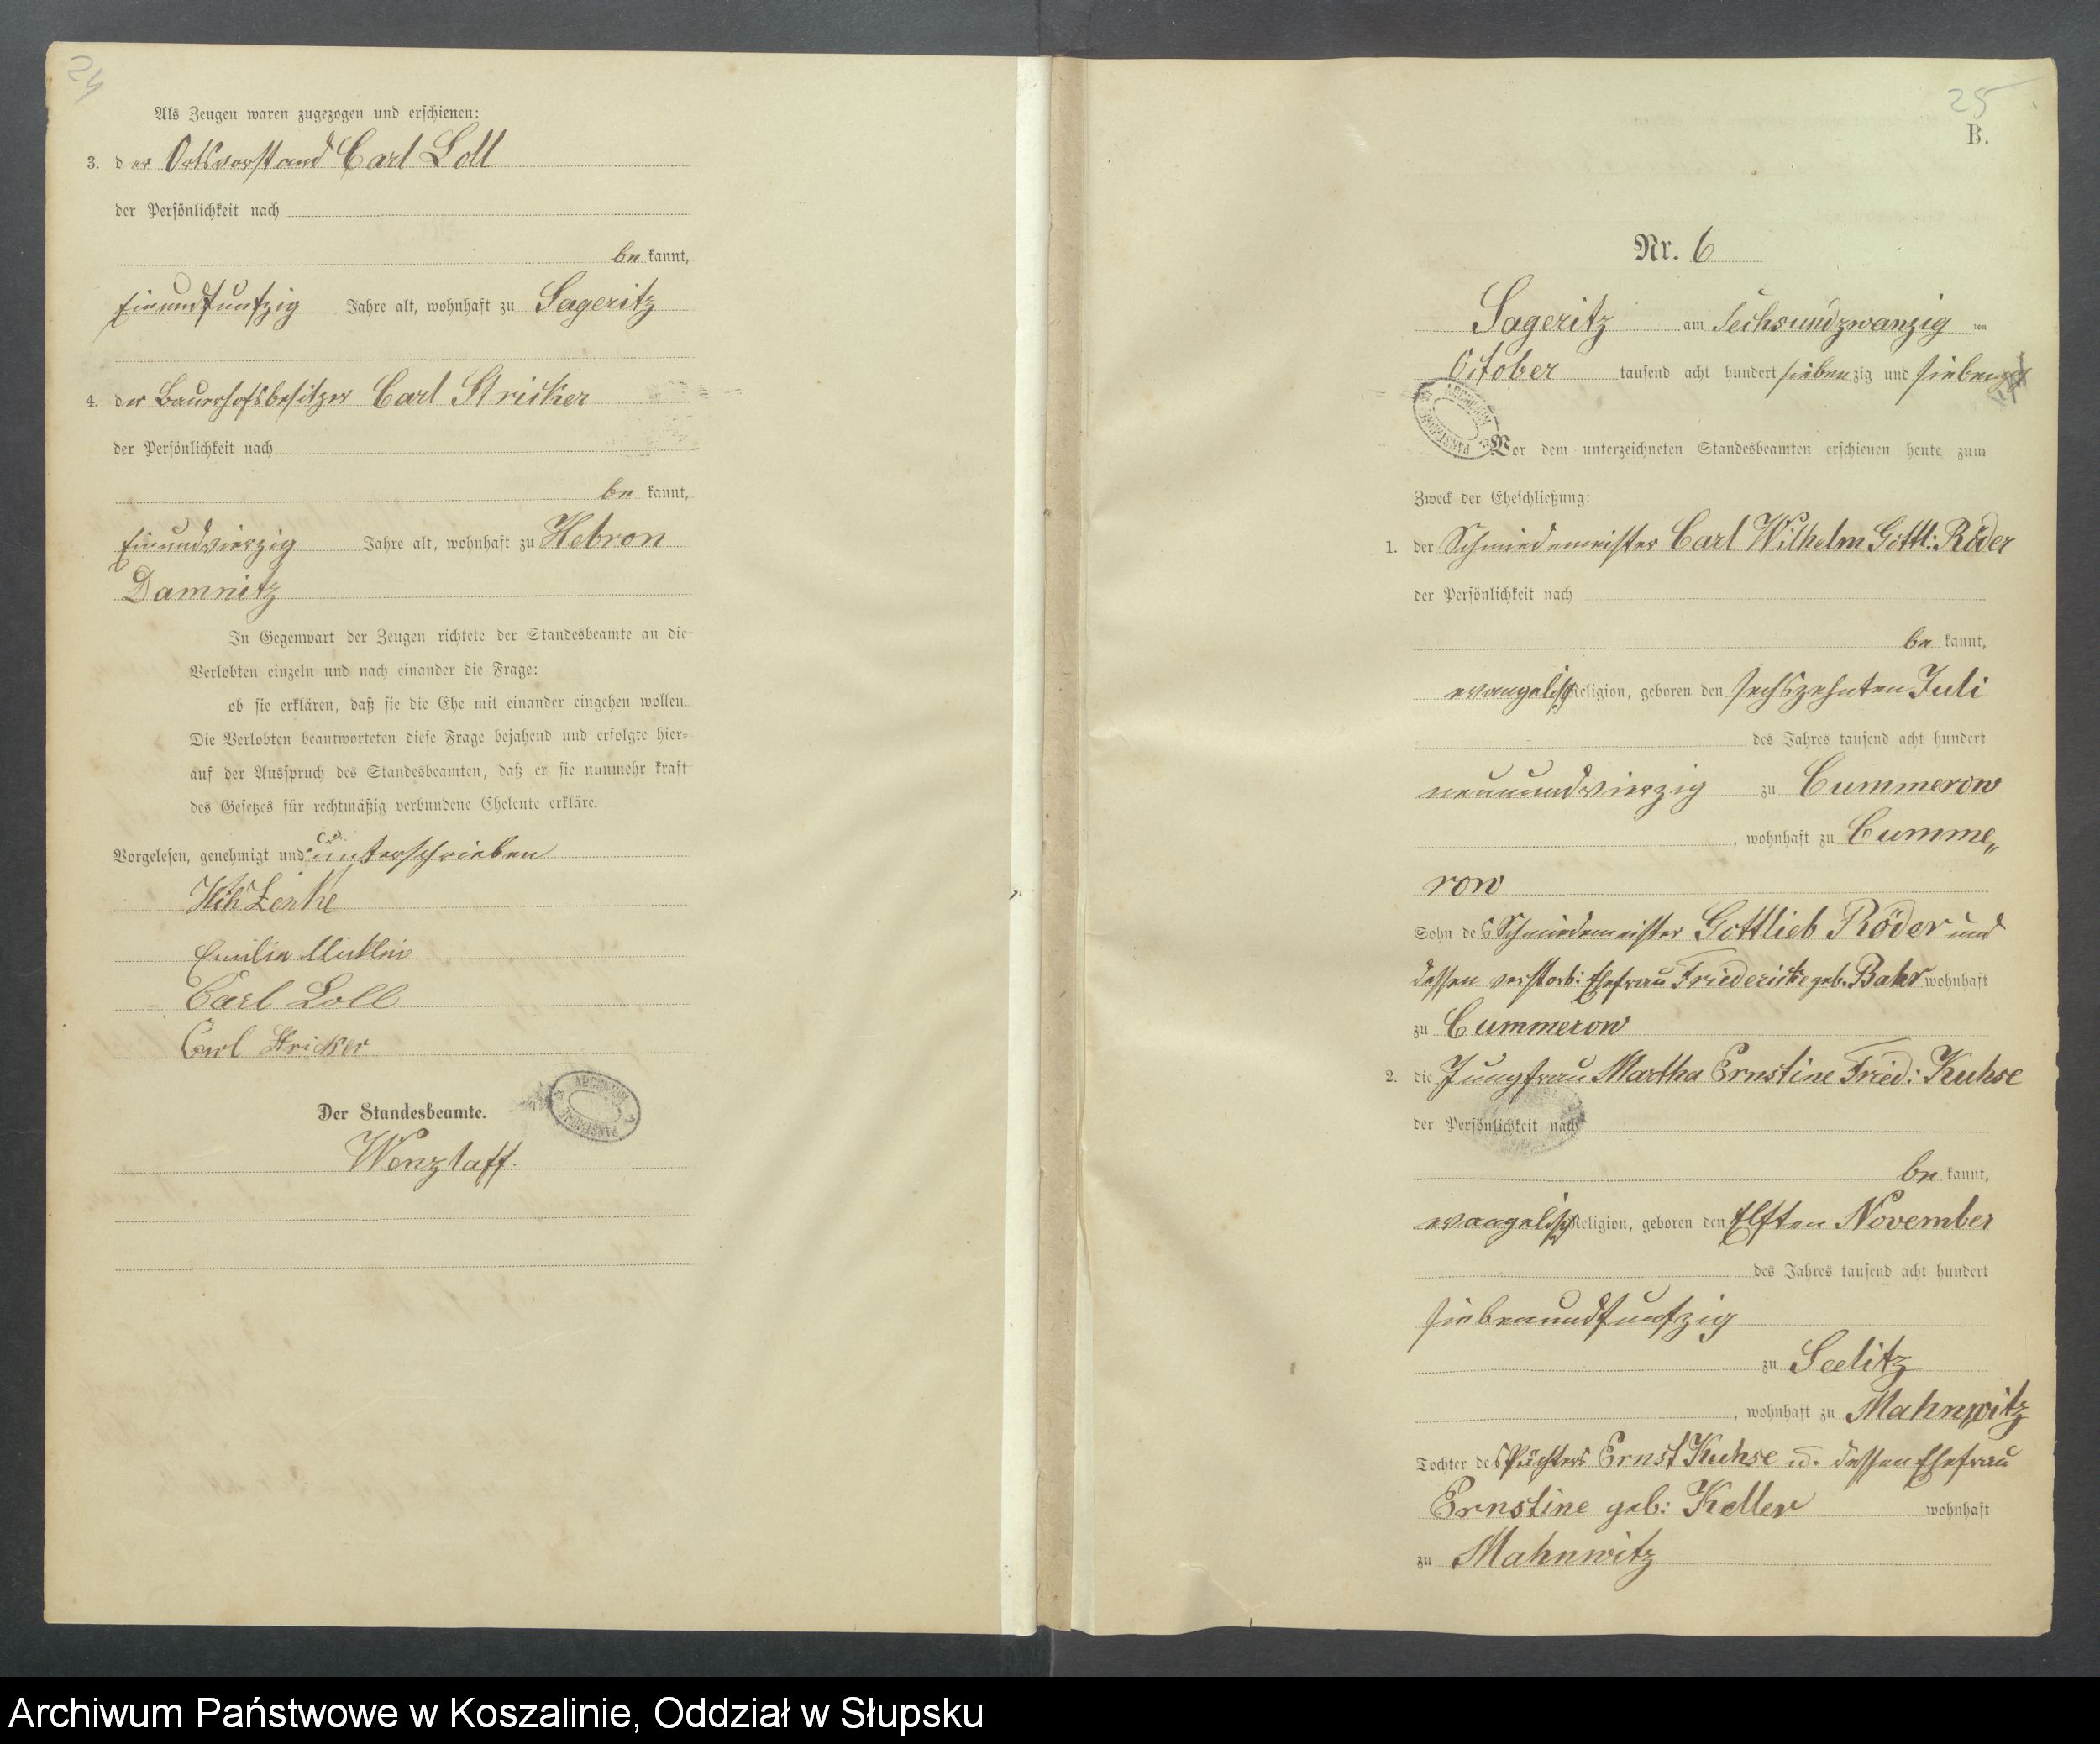 24
Als Zeugen waren zugezogen und erschienen:
3. der Ortsvorstand Carl Loll
der Persönlichkeit nach
be kannt,
Einundfunfzig Jahre alt, wohnhaft zu Sageritz
4. der Bauerhofsbesitzer Carl Stricker
der Persönlichkeit nach
be kannt,
Einundvierzig Jahre alt, wohnhaft zu Hebron
Damnitz
In Gegenwart der Zeugen richtete der Standesbeamte an die
Verlobten einzeln und nach einander die Frage:
ob sie erklären, daß sie die Ehe mit einander eingehen wollen.
Die Verlobten beantworteten diese Frage bejahend und erfolgte hier=
auf der Ausspruch des Standesbeamten, daß er sie nunmehr kraft
des Gesetzes für rechtmäßig verbundene Eheleute erkläre.
Vorgelesen, genehmigt und unterschrieben
Emilie
Carl Loll
Carl Stricker
Der Standesbeamte.
ARCHIWUM PAŃSTWOWE
Wenzlaff.
25
B.
Nr. 6
Sageritz am Sechsundzwanzig ten
October tausend acht hundert siebenzig und sieben
ARCHIWUM PAŃSTWOWE
Vor dem unterzeichneten Standesbeamten erschienen heute zum
Zweck der Eheschließung:
1. der Schmiedemeister Carl Wilhelm Gottl: Röder
der Persönlichkeit nach
be kannt,
evangelisch Religion, geboren den sechszehnten Juli
des Jahres tausend acht hundert
neunundvierzig zu Cummerow
, wohnhaft zu Cumme„
row
Sohn des Schmiedemeister Gottlieb Röder und
dessen verstorb: Ehefrau Friedericke geb. Bahr wohnhaft
zu Cummerow
2. die Jungfrau Martha Ernstine Fried: Kuhse
der Persönlichkeit nach
be kannt,
evangelisch Religion, geboren den Elften November
des Jahres tausend acht hundert
siebenundfunfzig
zu Seelitz
, wohnhaft zu Mahnwitz
Tochter des Pächters Ernst Kuhse u. dessen Ehefrau
Ernstine geb: Keller wohnhaft
zu Mahnwitz
Archiwum Państwowe w Koszalinie, Oddział w Słupsku